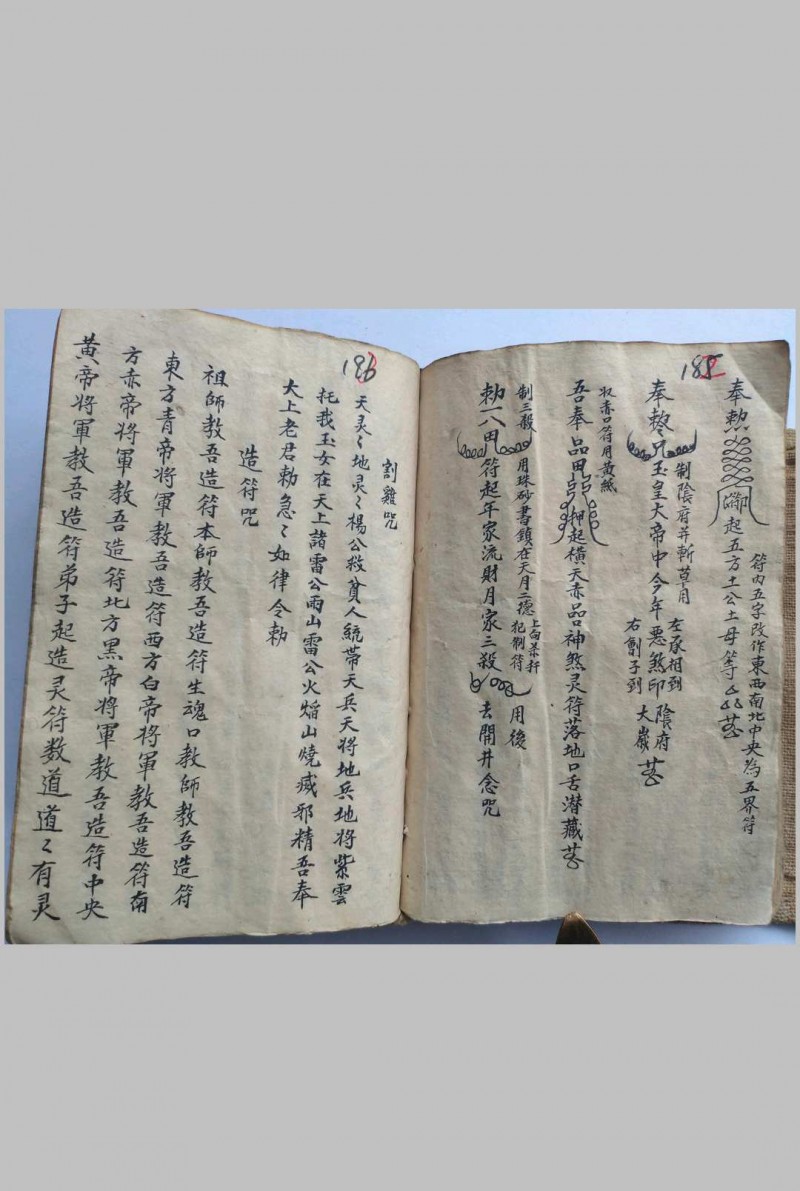 185
符内五字改作東西南北中央為五界符
奉勅 起五方土公土母等
制隂府并斬草用
奉勅 玉皇大帝中今年惡煞印
左承相到 隂府
右劊子到 大嵗
収赤口符用黃紙
吾奉品田 押起橫天赤品口神煞灵符落地口舌潜藏
制三殺 用珠砂書鎮在天月二德
上向茶秆
犯制符 用後
勅一八甲 符起年家流財月家三殺 去開井念咒
186
割雞咒
天灵〻地灵〻楊公救貧人統帶天兵天將地兵地將紫雲
托我玉女在天上諸雷公雨山雷公火焰山燒滅邪精吾奉
大上老君勅急〻如律令勅
造符咒
祖師教吾造符本師教吾造符生魂口教師教吾造符
東方青帝將軍教吾造符西方白帝將軍教吾造符南
方赤帝將軍教吾造符北方黑帝將軍教吾造符中央
黃帝將軍教吾造符弟子起造灵符数道道〻有灵